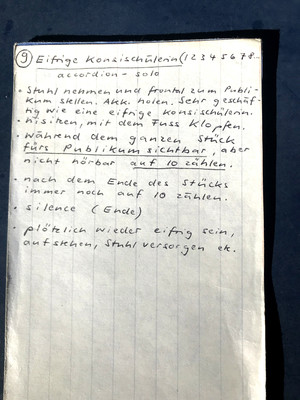 ⑨ Eifrige Konsischülerin (1 2 3 4 5 6 7 8...
accordion - solo
• Stuhl nehmen und frontal zum Publi-
kum stellen. Akk. holen. Sehr geschäf-
tig wie eine eifrige Konsischülerin.
• hisitzen, mit dem Fuss klopfen.
• während dem ganzen Stück
fürs Publikum sichtbar, aber
nicht hörbar auf 10 zählen.
• nach dem Ende des Stücks
immer noch auf 10 zählen.
• silence (Ende)
• plötzlich wieder eifrig sein,
aufstehen, Stuhl versorgen etc.